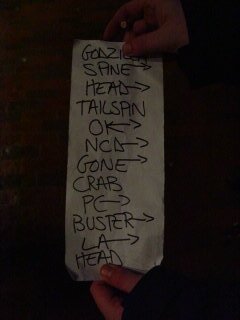 GODZILLA
SPINE →
HEAD →
TAILSPIN
OK →
NCD →
GONE →
CRAB
PC →
BUSTER →
LA →
HEAD